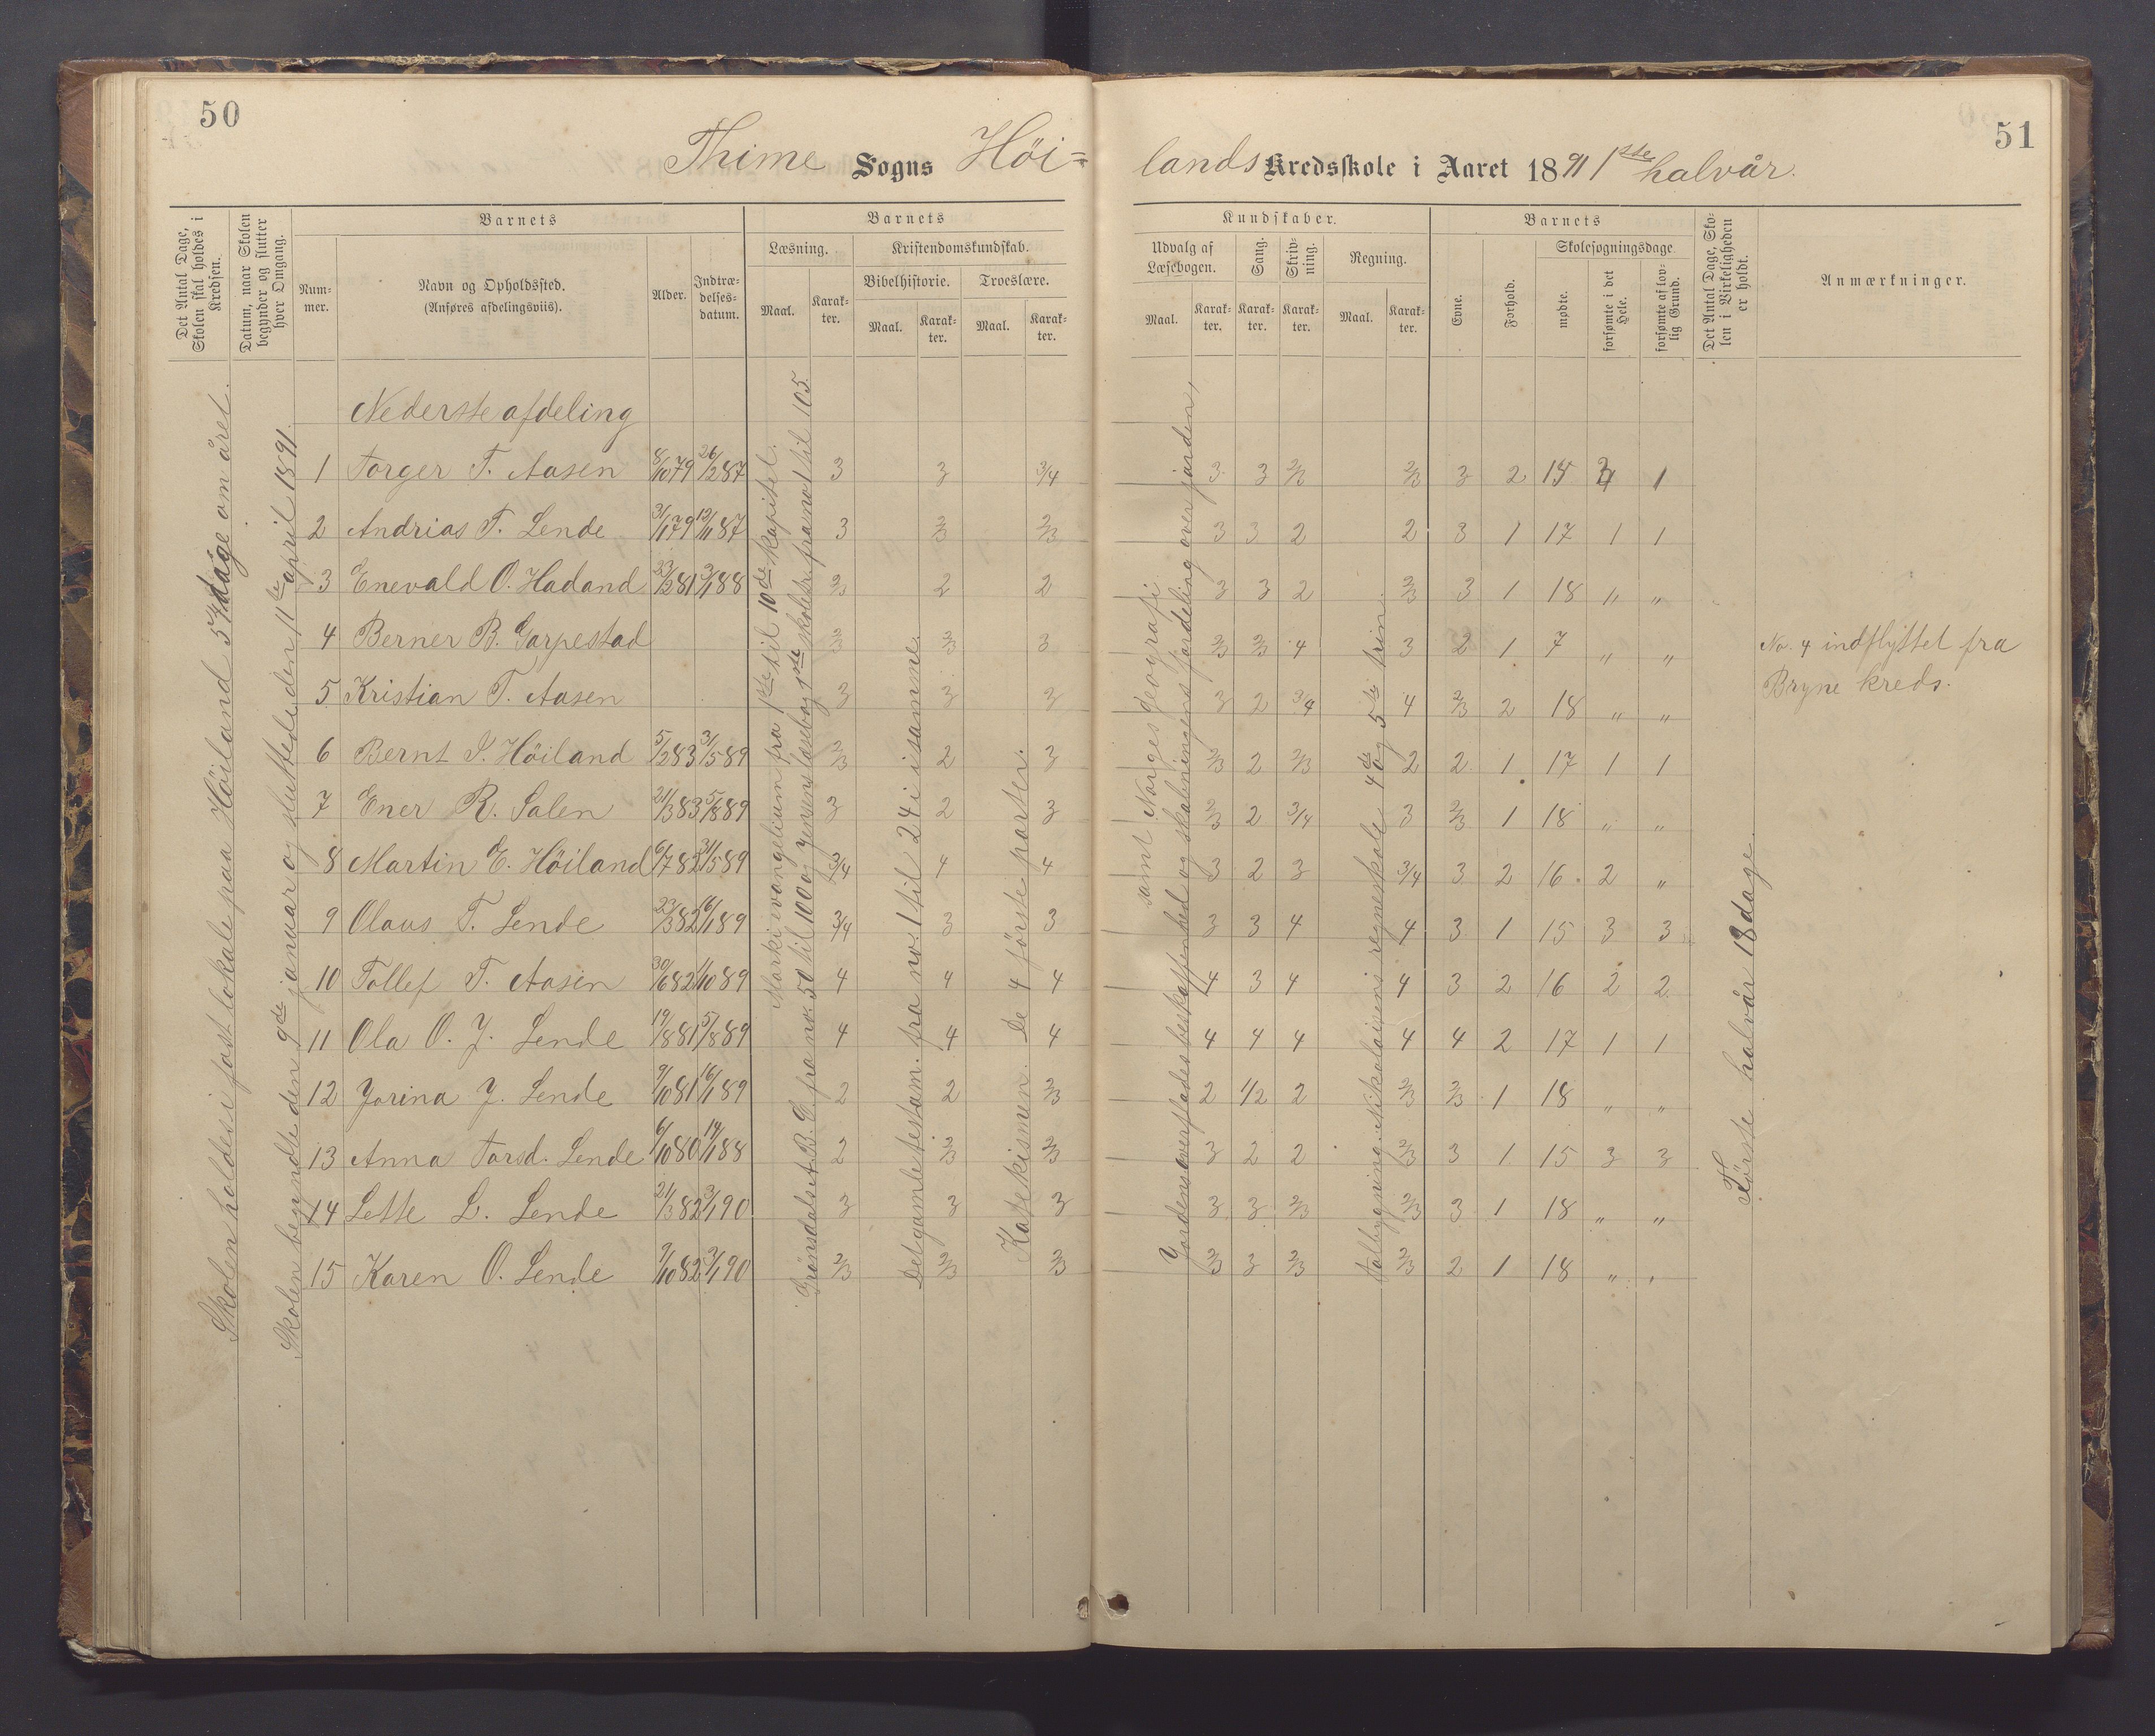 50
Thime Sogns Höi=
Det Antal Dage, Skolen skal holdes i Kredsen.
Datum, naar Skolen begynder og slutter hver Omgang.
Barnets
Num-mer.
Navn og Opholdssted.
(Anføres afdelingsviis).
Alder.
Indtræ-delses-datum.
Barnets
Læsning.
Kristendomskundskab.
Bibelhistorie.
Troeslære.
Maal.
Karak-ter.
Maal.
Karak-ter.
Maal.
Karak-ter.
Skolen holdes i fast lokale paa Höiland 57 dage om året.
Skolen begyndte den 9de januar og sluttede den 11te april 1891.
Nederste afdeling
1 Torger T. Aasen 8/10 79 26/2 87 3 3 3/4
2 Andrias T. Lende 31/1 79 12/11 87 3 2/3 2/3
3 Enevald O. Hadand 23/2 81 3/1 88 2/3 2 2
4 Berner B. Garpestad 2/3 2/3 3
5 Kristian T. Aasen 3 3 3
6 Bernt S. Höiland 5/2 83 31/5 89 2/3 2 3
7 Ener R. Salen 21/3 83 5/8 89 3 2 3
8 Martin E. Höiland 6/7 82 31/5 89 3/4 4 4
9 Olaus T. Lende 22/3 82 16/1 89 3/4 3 3
10 Tollef T. Aasen 30/6 82 1/10 89 4 4 4
11 Ola O. J. Lende 19/8 81 5/8 89 4 4 4
12 Jorina J. Lende 9/10 81 16/1 89 2 2 2/3
13 Anna Torsd. Lende 6/10 80 19/1 88 2 2/3 2/3
14 Lette L. Lende 21/3 82 3/1 90 3 3 3
15 Karen O. Lende 9/10 82 3/1 90 2/3 2/3 2/3
Marki evangelium fra 1ste til 10de kapitel.
Grönsdals A.B.C. fra no. 50 til 100 og Jensens læsebog 1ste skoletr. fra no 1 til 105.
Det gamle testam. fra no. 1 til 24 i samme.
Katekismen. De 4 förste parter.
51
lands Kredsskole i Aaret 1891 1ste halvår.
Kundskaber.
Udvalg af Læsebogen.
Sang.
Skriv-ning.
Regning.
Maal.
Karak-ter.
Karak-ter.
Karak-ter.
Maal.
Karak-ter.
Barnets
Evne.
Forhold.
Skolesøgningsdage
mødte.
forsømte i det Hele.
forsømte af lov-lig Grund.
Det Antal Dage, Sko-len i Virkeligheden er holdt.
Anmærkninger.
3 3 2/3 2/3 3 2 15 1
3 3 2 2 3 1 17 1 1
3 3 2 2/3 3 1 18 " "
2/3 2/3 4 3 2 1 7 " "
3 2 3/4 4 2/3 2 18 " "
2/3 2 2/3 2 2 1 17 1 1
2/3 2 3/4 3 2/3 1 18 " "
3 2 3 3/4 3 2 16 2 "
3 3 4 4 3 1 15 3 3
4 3 4 4 3 2 16 2 2
4 4 4 4 4 2 17 1 1
2 1/2 2 2/3 2/3 1 18 " "
3 2 2 2/3 3 1 15 3 3
3 3 2/3 2/3 3 1 18 " "
2/3 3 2/3 2/3 2 1 18 " "
Jordens overflades beskaffenhed og skabningens fordeling over jorden,
samt Norges geografi.
Talbygning. Nikolaisens regneskole 4de og 5te trin.
Förste halvår 18 dage.
No. 4 indflyttet fra
Bryne kreds.